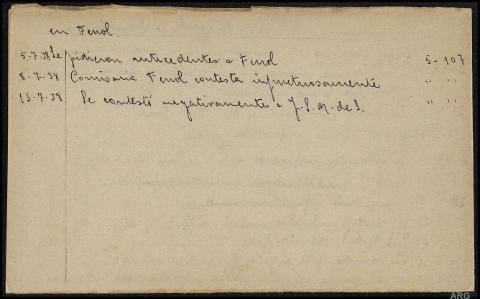 en Ferrol.
5-7-38 Se pidieron antecedentes a Ferrol 5-107
8-7-38 Comisaria Ferrol contesta infructuosamente " "
13-7-38 Se contestó negativamente a J.S.N. de S. " "
ARG